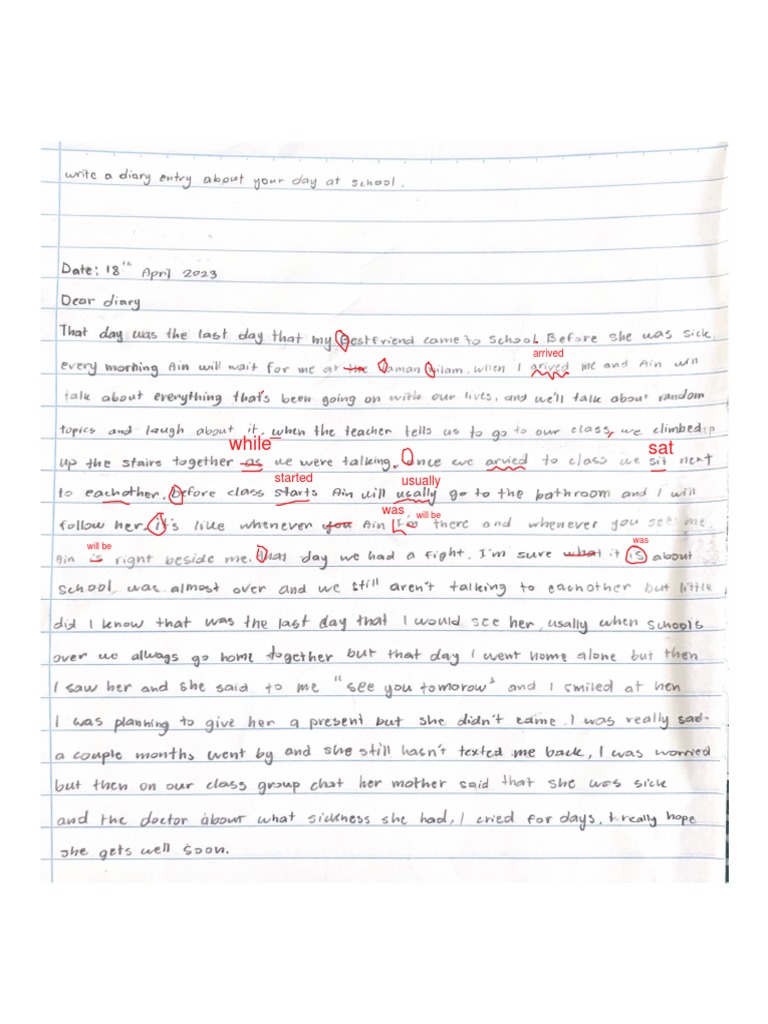 write a diary entry about your day at school.
Date: 18th April 2023
Dear diary
That day was the last day that my Bestfriend came to School. Before she was sick,
arrived
every morning Ain will wait for me at the taman nilam, when I arived me and Ain will
talk about everything that's been going on with our lives, and we'll talk about random
topics and laugh about it, when the teacher tells us to go to our class, we climbed
while
sat
up the stairs together as we were talking. Once we arvied to class we sit next
started
usually
to eachother, before class starts Ain will usally go to the bathroom and I will
was
will be
follow her. it's like whenever you Ain I'm there and whenever you see me
will be
was
Ain is right beside me. that day we had a fight. I'm sure what it is about
school, was almost over and we still aren't talking to eachother but little
did I know that was the last day that I would see her, usally when schools
over we always go home together but that day I went home alone but then
I saw her and she said to me "see you tomorow" and I smiled at her
I was planning to give her a present but she didn't came. I was really sad.
a couple months went by and she still hasn't texted me back, I was worried
but then on our class group chat her mother said that she was sick
and the doctor about what sickness she had, I cried for days, I really hope
she gets well soon.